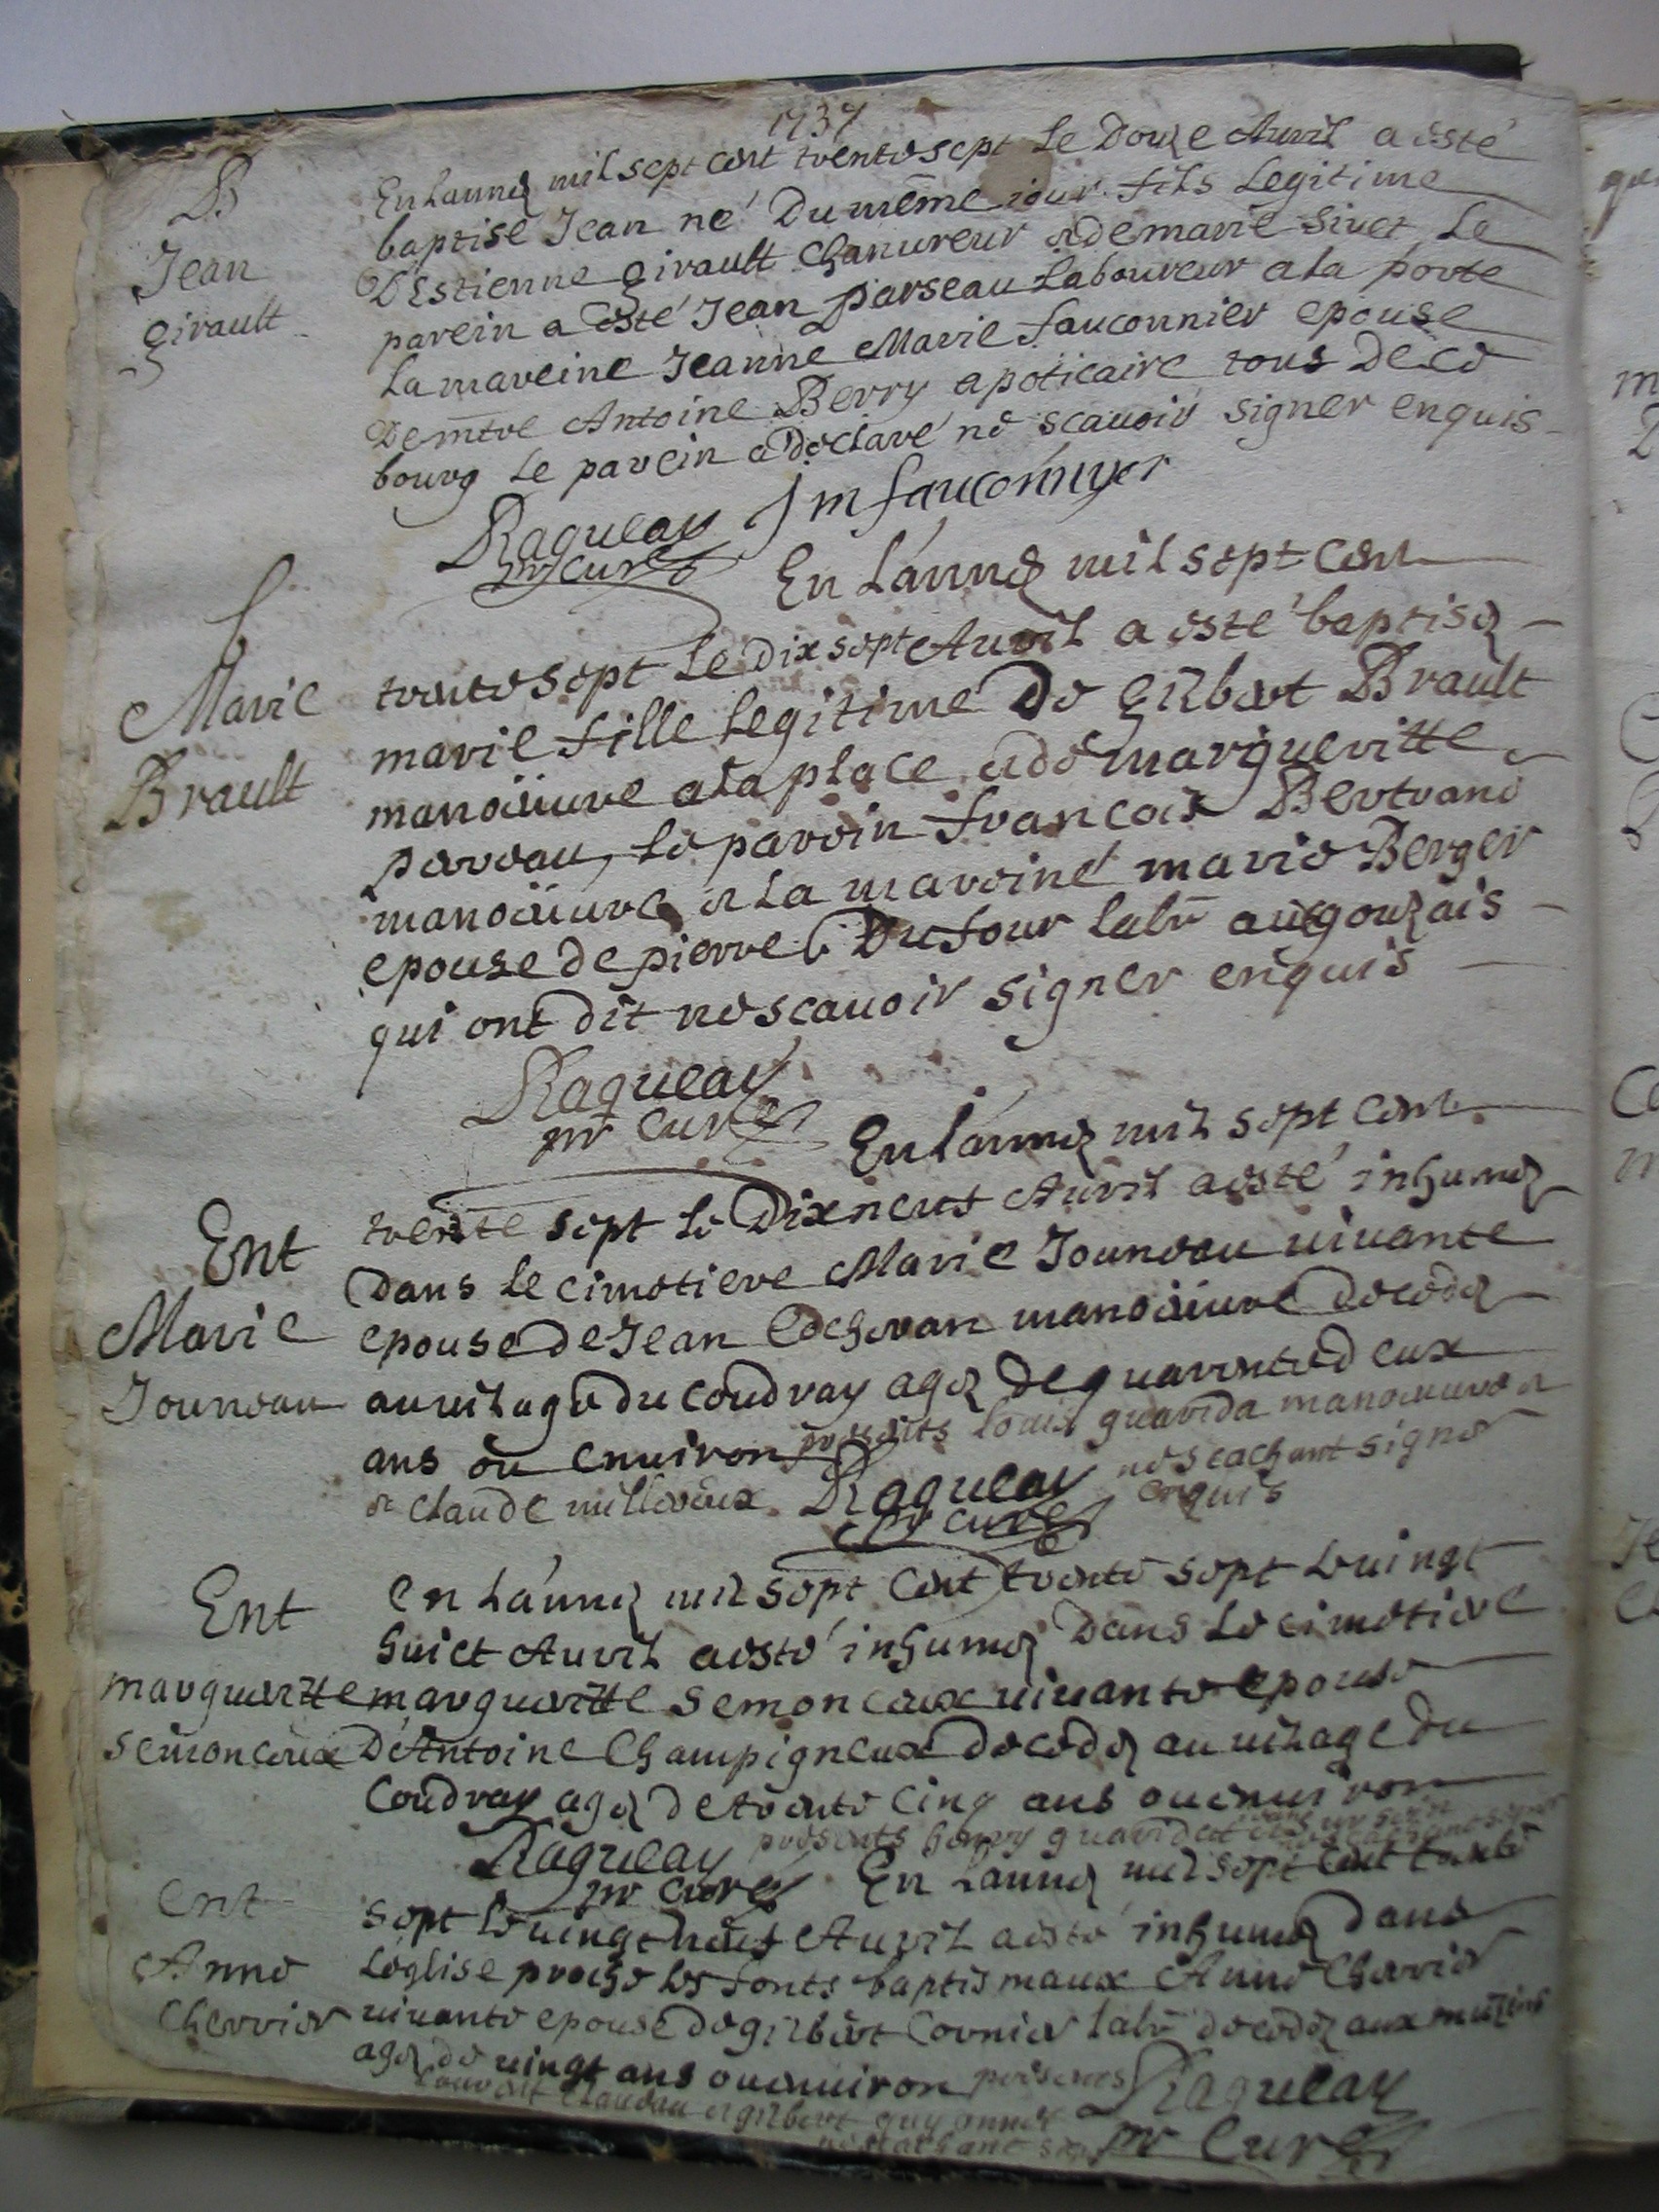 1737
B
Jean
girault
En Lannee mil sept cent trente sept Le Douze Auril a esté
baptisé Jean né Du même iour fils Legitime
D Estienne girault Chanureur et de marie siuet Le
parein a esté Jean parseau Laboureur a La porte
La mareine Jeanne Marie fauconnier epouse
De mtre Antoine Berry apoticaire tous De ce
bourg Le parein a Declaré ne scauoir signer enquis
Raqueau J m fauconnyer
pr curé
b
Marie
Brault
En L'annee mil sept cent
trente sept Le Dix sept Auril a esté baptisee
marie fille Legitime De gilbert Brault
manoeuure a la place et de margueritte
pareau, Le parein francois Bertrand
manoeuure et La mareine marie Berger
epouse de pierre Dufour labr aux gouzais
qui ont dit ne scauoir signer enquis
Raqueau
pr curé
Ent
Marie
Jouneau
En L'annee mil sept cent
trente sept Le Dix neuf Auril a esté inhumee
Dans Le cimetiere Marie Jouneau uiuante
epouse de Jean Cocheran manoeuure decedee
au uilage du Coudray agee de quarente deux
ans ou enuiron presents louis guarida manoeuure et
et claude milleraux Raqueau ne scachant signer
pr curé enquis
Ent
margueritte
semonceux
en L'annee mil sept cent trente sept Le uingt
huict Auril a esté inhumee Dans Le cimetiere
margueritte semonceux uiuante epouse
D'Antoine Champigneux Decedee au uilage Du
Coudray agee de trente cinq ans ou enuiron
presents henry guarida
Raqueau
pr curé
ent
Anne
Cherrier
En Lannee mil sept cent trente
sept Le uingt neuf Auril a esté inhumee Dans
L'église proche les fonts baptismaux Anne Cherrier
uiuante epouse de gilbert Cornier labr decedee aux
agee de uingt ans ou enuiron presents Raqueau
et gilbert
ne scachant pr Curé